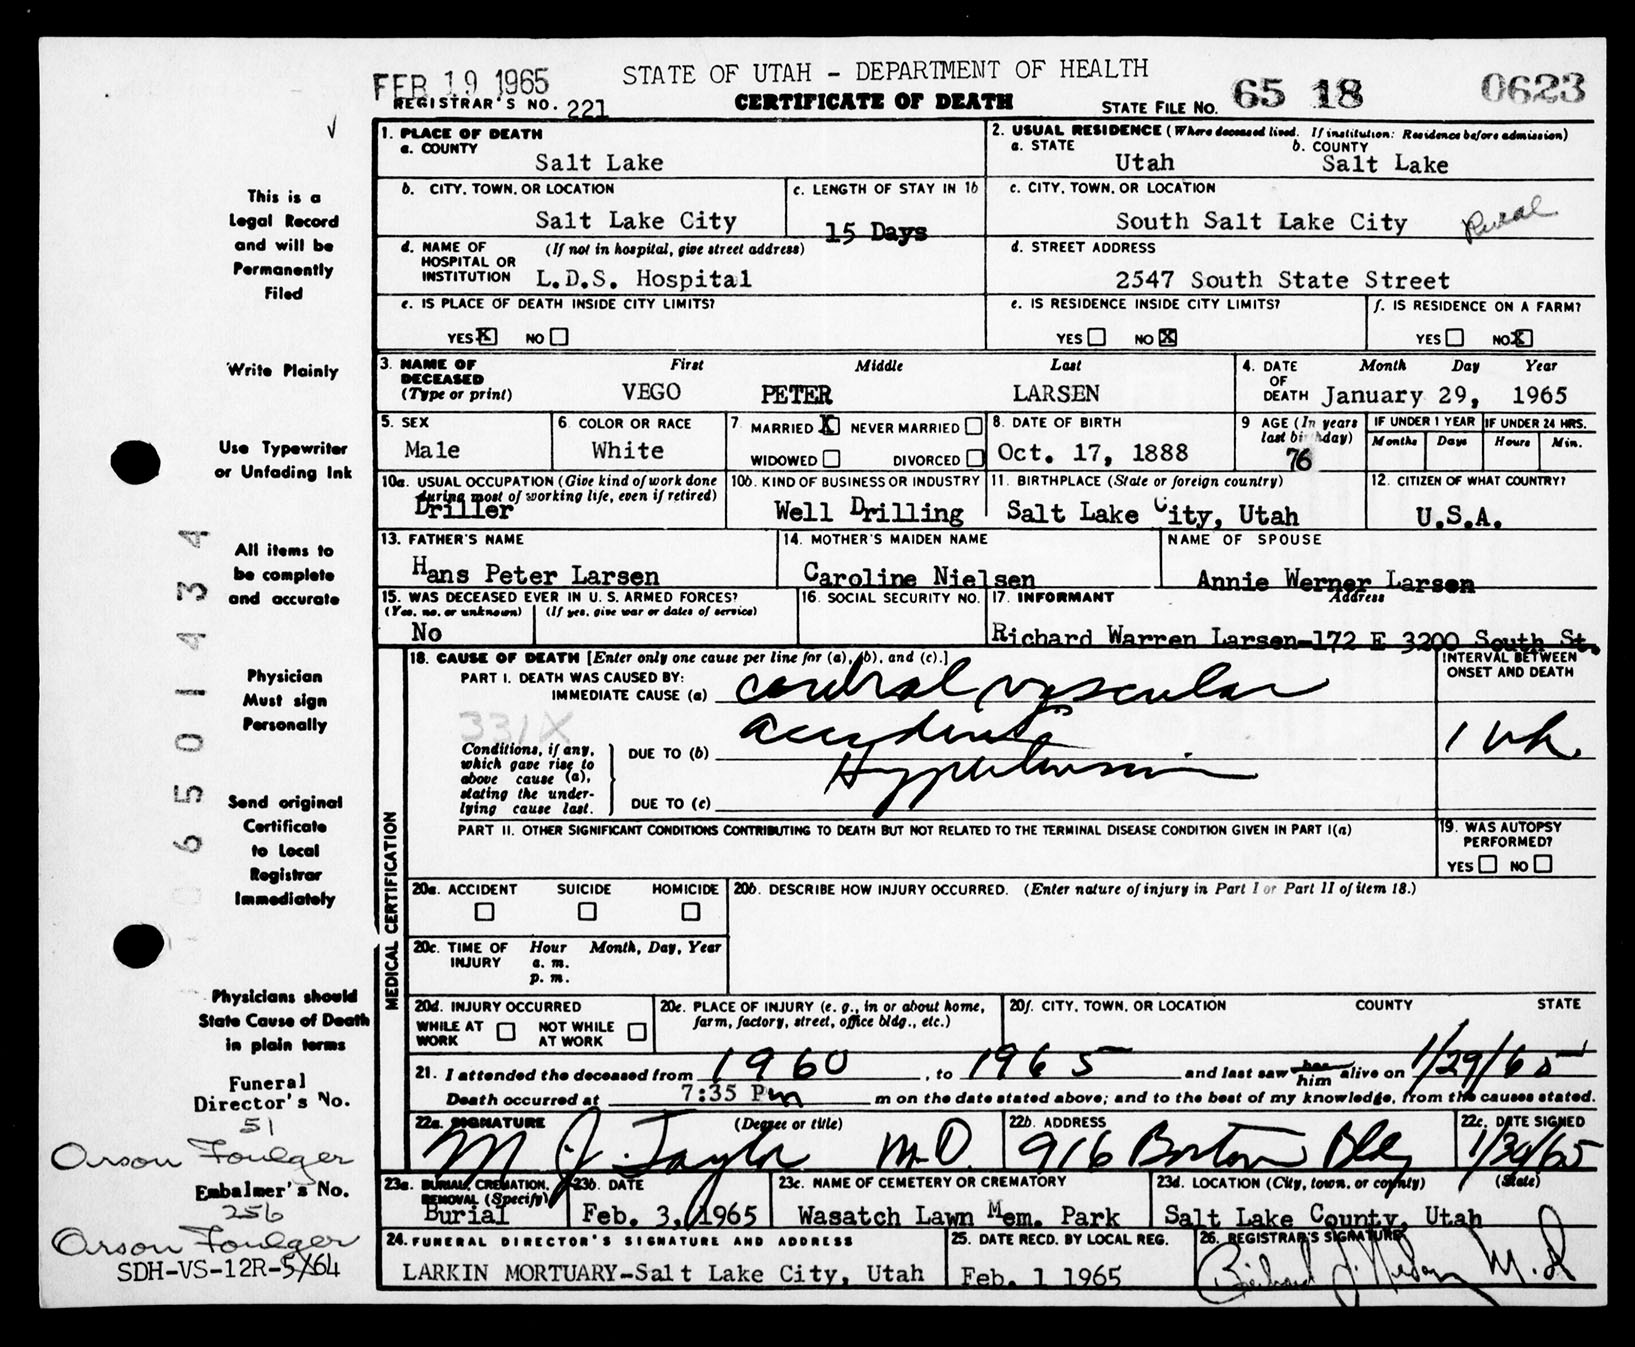 FEB 19 1965
STATE OF UTAH - DEPARTMENT OF HEALTH
REGISTRAR'S NO. 221
CERTIFICATE OF DEATH
STATE FILE NO. 65 18 0623
This is a
Legal Record
and will be
Permanently
Filed
Write Plainly
Use Typewriter
or Unfading Ink
All items to
be complete
and accurate
Physician
Must sign
Personally
Send original
Certificate
to Local
Registrar
Immediately
Physicians should
State Cause of Death
in plain terms
Funeral
Director's No.
51
Orson Foulger
Embalmer's No.
256
Orson Foulger
SDH-VS-12R-5/64
06501434
1. PLACE OF DEATH
a. COUNTY
Salt Lake
2. USUAL RESIDENCE (Where deceased lived. If institution: Residence before admission)
a. STATE
Utah
b. COUNTY
Salt Lake
b. CITY, TOWN, OR LOCATION
Salt Lake City
c. LENGTH OF STAY IN 1b
15 Days
c. CITY, TOWN, OR LOCATION
South Salt Lake City
Rural
d. NAME OF HOSPITAL OR INSTITUTION
(If not in hospital, give street address)
L.D.S. Hospital
d. STREET ADDRESS
2547 South State Street
e. IS PLACE OF DEATH INSIDE CITY LIMITS?
YES X NO
e. IS RESIDENCE INSIDE CITY LIMITS?
YES NO X
f. IS RESIDENCE ON A FARM?
YES NO X
3. NAME OF DECEASED
(Type or print)
First Middle Last
VEGO PETER LARSEN
4. DATE OF DEATH
Month Day Year
January 29, 1965
5. SEX
Male
6. COLOR OR RACE
White
7. MARRIED X NEVER MARRIED
WIDOWED DIVORCED
8. DATE OF BIRTH
Oct. 17, 1888
9 AGE (In years last birthday)
76
IF UNDER 1 YEAR
Months Days
IF UNDER 24 HRS.
Hours Min.
10a. USUAL OCCUPATION (Give kind of work done during most of working life, even if retired)
Driller
10b. KIND OF BUSINESS OR INDUSTRY
Well Drilling
11. BIRTHPLACE (State or foreign country)
Salt Lake City, Utah
12. CITIZEN OF WHAT COUNTRY?
U.S.A.
13. FATHER'S NAME
Hans Peter Larsen
14. MOTHER'S MAIDEN NAME
Caroline Nielsen
NAME OF SPOUSE
Annie Werner Larsen
15. WAS DECEASED EVER IN U.S. ARMED FORCES?
(Yes, no, or unknown) (If yes, give war or dates of service)
No
16. SOCIAL SECURITY NO.
17. INFORMANT Address
Richard Warren Larsen-172 E 3200 South St.
MEDICAL CERTIFICATION
18. CAUSE OF DEATH [Enter only one cause per line for (a), (b), and (c).]
PART I. DEATH WAS CAUSED BY:
IMMEDIATE CAUSE (a) cerebral vascular
331X
accident
Conditions, if any, which gave rise to above cause (a), stating the underlying cause last.
DUE TO (b)
Hypertension
DUE TO (c)
INTERVAL BETWEEN ONSET AND DEATH
1 wk.
PART II. OTHER SIGNIFICANT CONDITIONS CONTRIBUTING TO DEATH BUT NOT RELATED TO THE TERMINAL DISEASE CONDITION GIVEN IN PART I(a)
19. WAS AUTOPSY PERFORMED?
YES NO
20a. ACCIDENT SUICIDE HOMICIDE
20b. DESCRIBE HOW INJURY OCCURRED. (Enter nature of injury in Part I or Part II of item 18.)
20c. TIME OF INJURY
Hour Month, Day, Year
a. m.
p. m.
20d. INJURY OCCURRED
WHILE AT WORK NOT WHILE AT WORK
20e. PLACE OF INJURY (e. g., in or about home, farm, factory, street, office bldg., etc.)
20f. CITY, TOWN, OR LOCATION COUNTY STATE
21. I attended the deceased from 1960, to 1965 and last saw her him alive on 1/29/65
Death occurred at 7:35 Pm m on the date stated above; and to the best of my knowledge, from the causes stated.
22a. SIGNATURE (Degree or title)
M J. Taylor M.D.
22b. ADDRESS
916 Boston Bldg
22c. DATE SIGNED
1/30/65
23a. BURIAL, CREMATION, REMOVAL (Specify)
Burial
23b. DATE
Feb. 3, 1965
23c. NAME OF CEMETERY OR CREMATORY
Wasatch Lawn Mem. Park
23d. LOCATION (City, town, or county) (State)
Salt Lake County, Utah
24. FUNERAL DIRECTOR'S SIGNATURE AND ADDRESS
LARKIN MORTUARY-Salt Lake City, Utah
25. DATE RECD. BY LOCAL REG.
Feb. 1 1965
26. REGISTRAR'S SIGNATURE
M.D